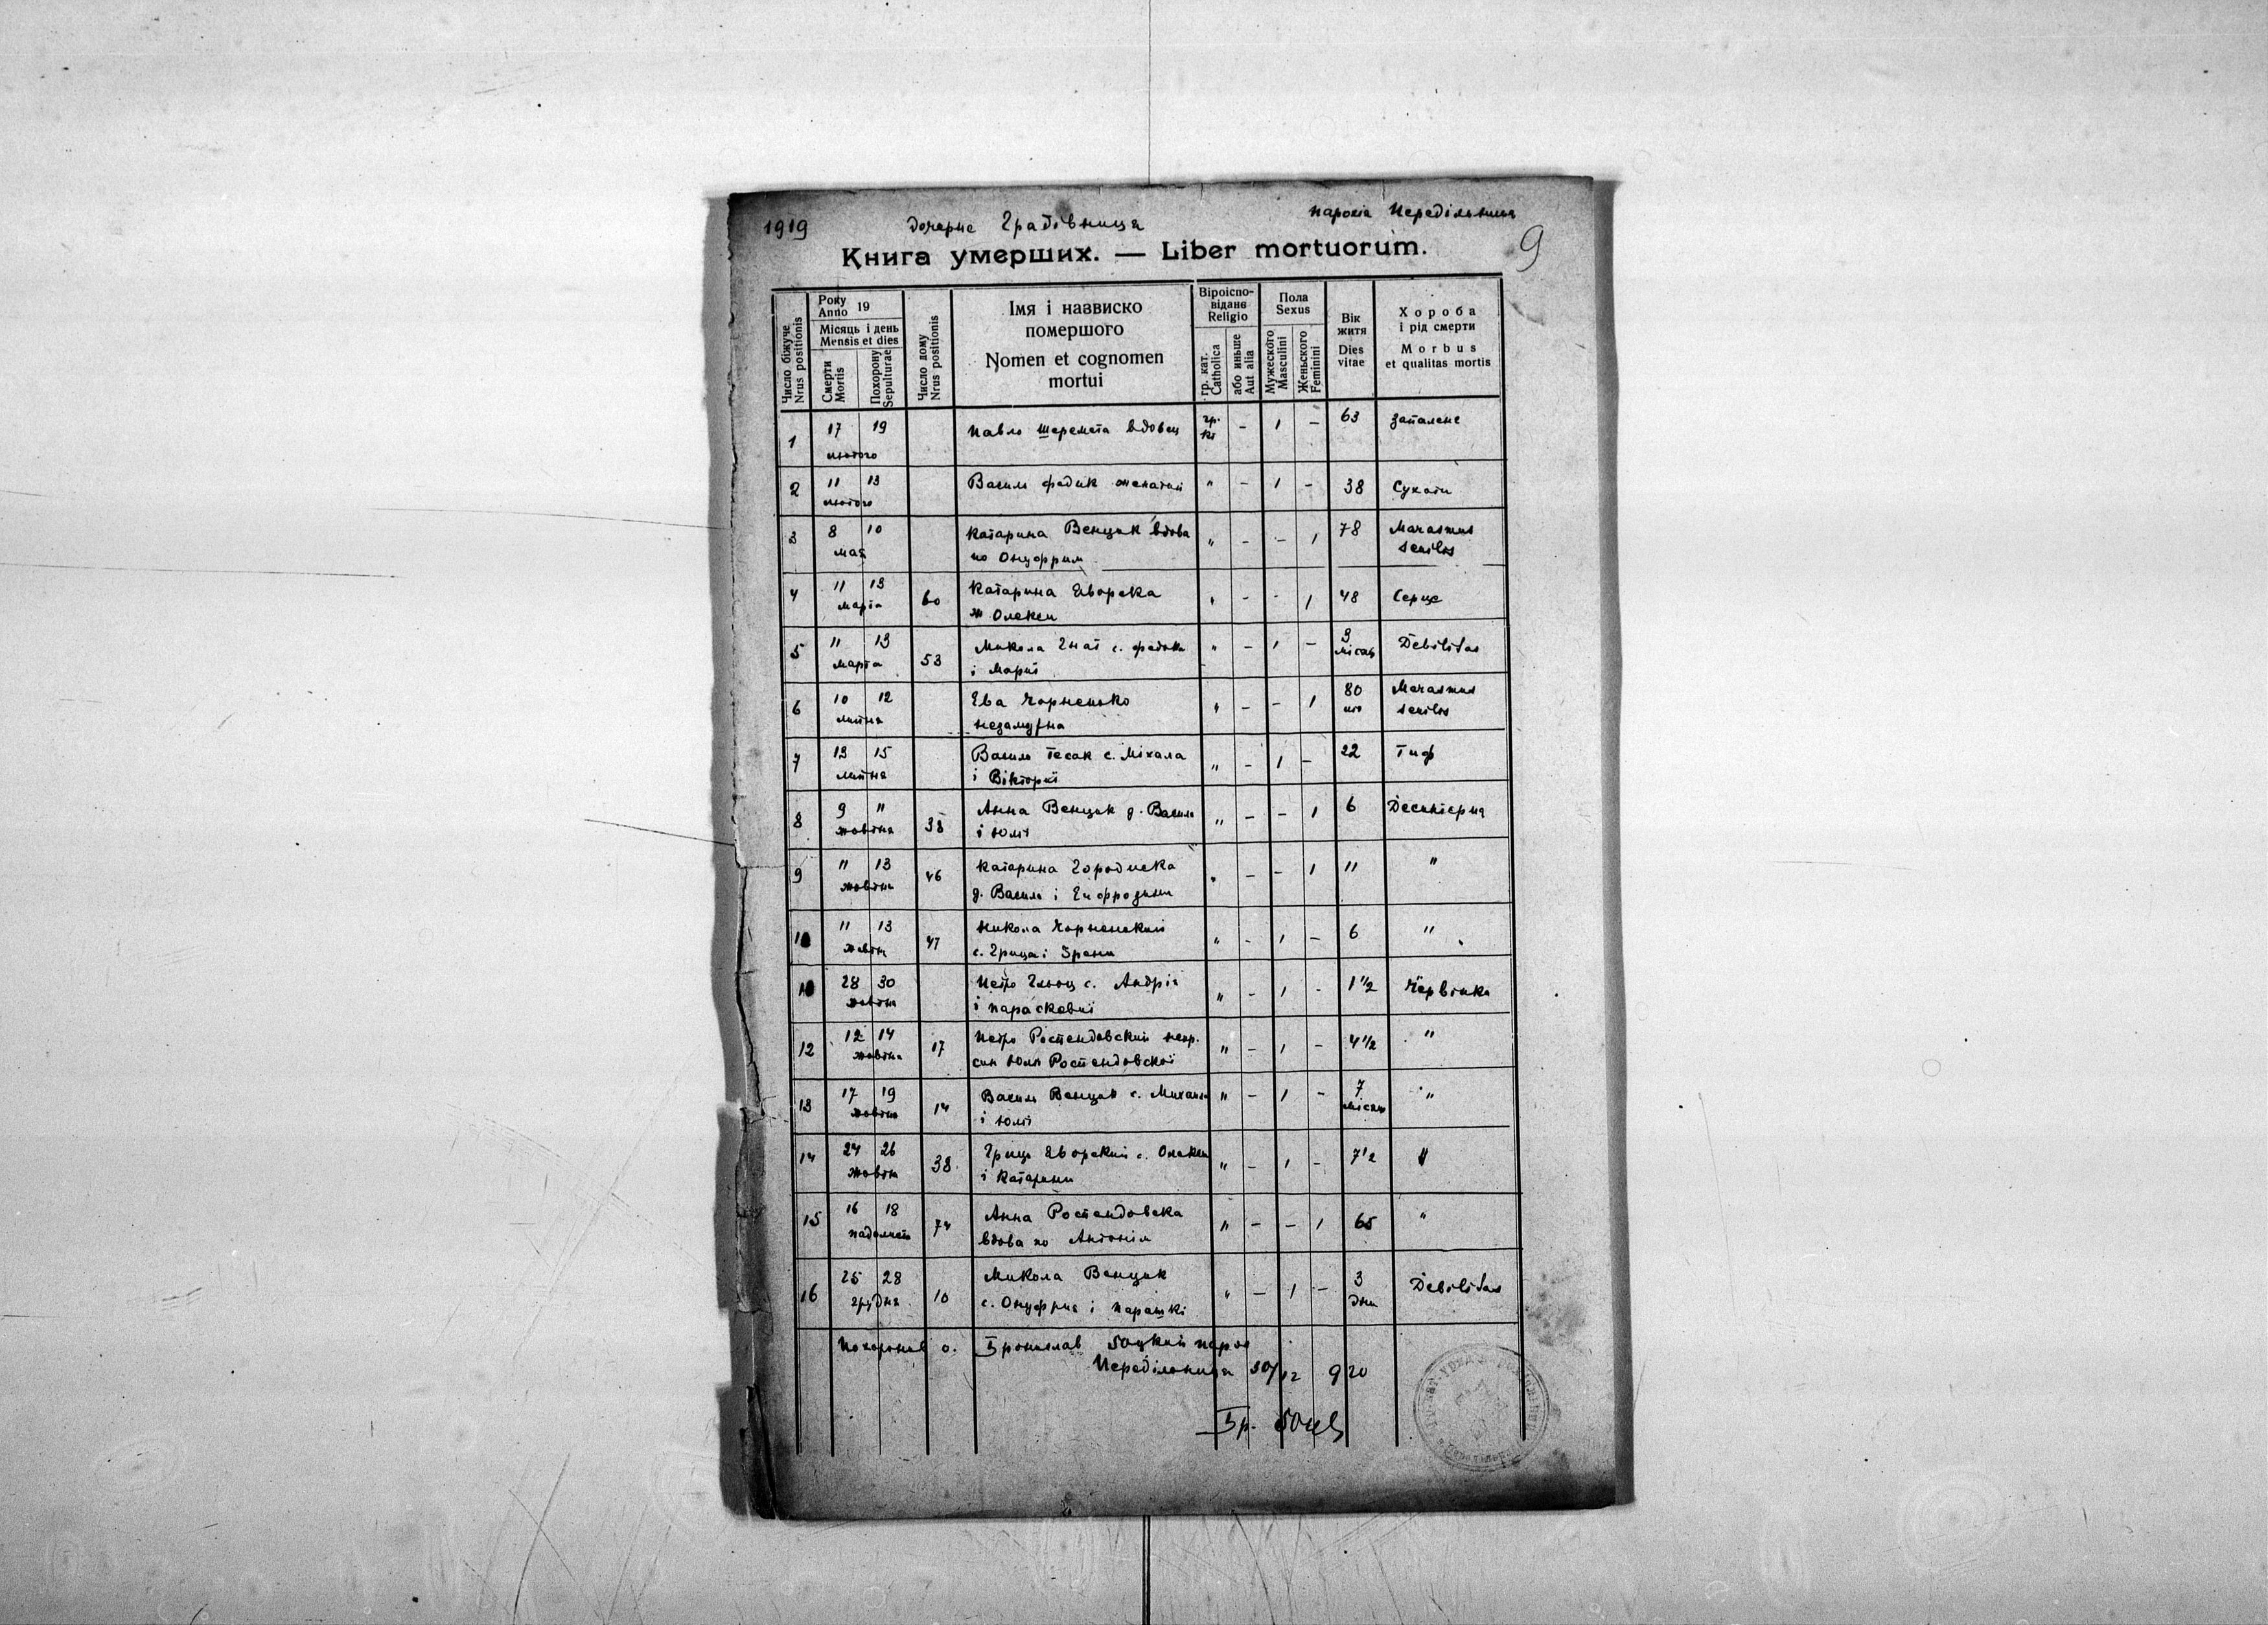 1919 дочерне Градівниця парохія Передільниця
9
Книга умерших. — Liber mortuorum.
Число біжуче Nrus positionis
Року Anno 19
Місяць і день Mensis et dies
Смерти Mortis
Похорону Sepulturae
Число дому Nrus positionis
Імя і назвиско помершого
Nomen et cognomen mortui
Віроісповідане Religio
гр. кат. Catholica
або иньше Aut alia
Пола Sexus
Мужеского Masculini
Женьского Feminini
Вік житя Dies vitae
Хороба і рід смерти
Morbus et qualitas mortis
1 17 19 Павло Шеремета вдовец гр. – 1 – 63 Запалене
лютого кт
2 11 13 Василь Федик женатий " – 1 – 38 Сухоти
лютого
3 8 10 Катарина Венцак вдова " – – 1 78 Marasmus
мая по Онуфрим senilis
4 11 13 60 Катарина Яворска " – – 1 48 Серце
марта ж Олекси
5 11 13 53 Микола Гнат с. Федька " – 1 – Debilitas
марта і Мариї місяц
6 10 12 Ева Чорненько " – – 1 80 Marasmus
липня senilis
7 13 15 Василь Тесак с. Міхала " – 1 – 22 Тиф
липня і Вікториї
8 9 11 38 Анна Венцак д. Василя " – – 1 6 Десинтерия
жовтня і Юлії
9 11 13 46 Катарина Городиска " – – 1 11 "
жовтня д. Василя і
10 11 13 Микола Чорненький " – 1 – 6 "
жовтн с. Гриця і Ірени
28 30 Петро с. Андрія " – 1 – 1 1/2 Червінка
жовтн і Параскевиї
12 12 14 17 Петро Ростендовский непр. " – 1 – 4 1/2 "
жовтня син Юлії Ростендовскої
13 17 19 14 Василь Венцак с. Михаила " – 1 – 7 "
жовтн і Юлії місяц
14 24 26 38 Гриць Яворский с. Олекси " – 1 – 7 1/2 "
жовтн і Катарини
15 16 18 74 Анна Ростендовска " – – 1 65 "
падолиста вдова по Антонім
16 25 28 10 Микола Венцак " – 1 – 3 Debilitas
грудня с. Онуфрия і Парашкі дни
Похоронив о. Броніслав парох
Передільниця 30/12 920
Бр.